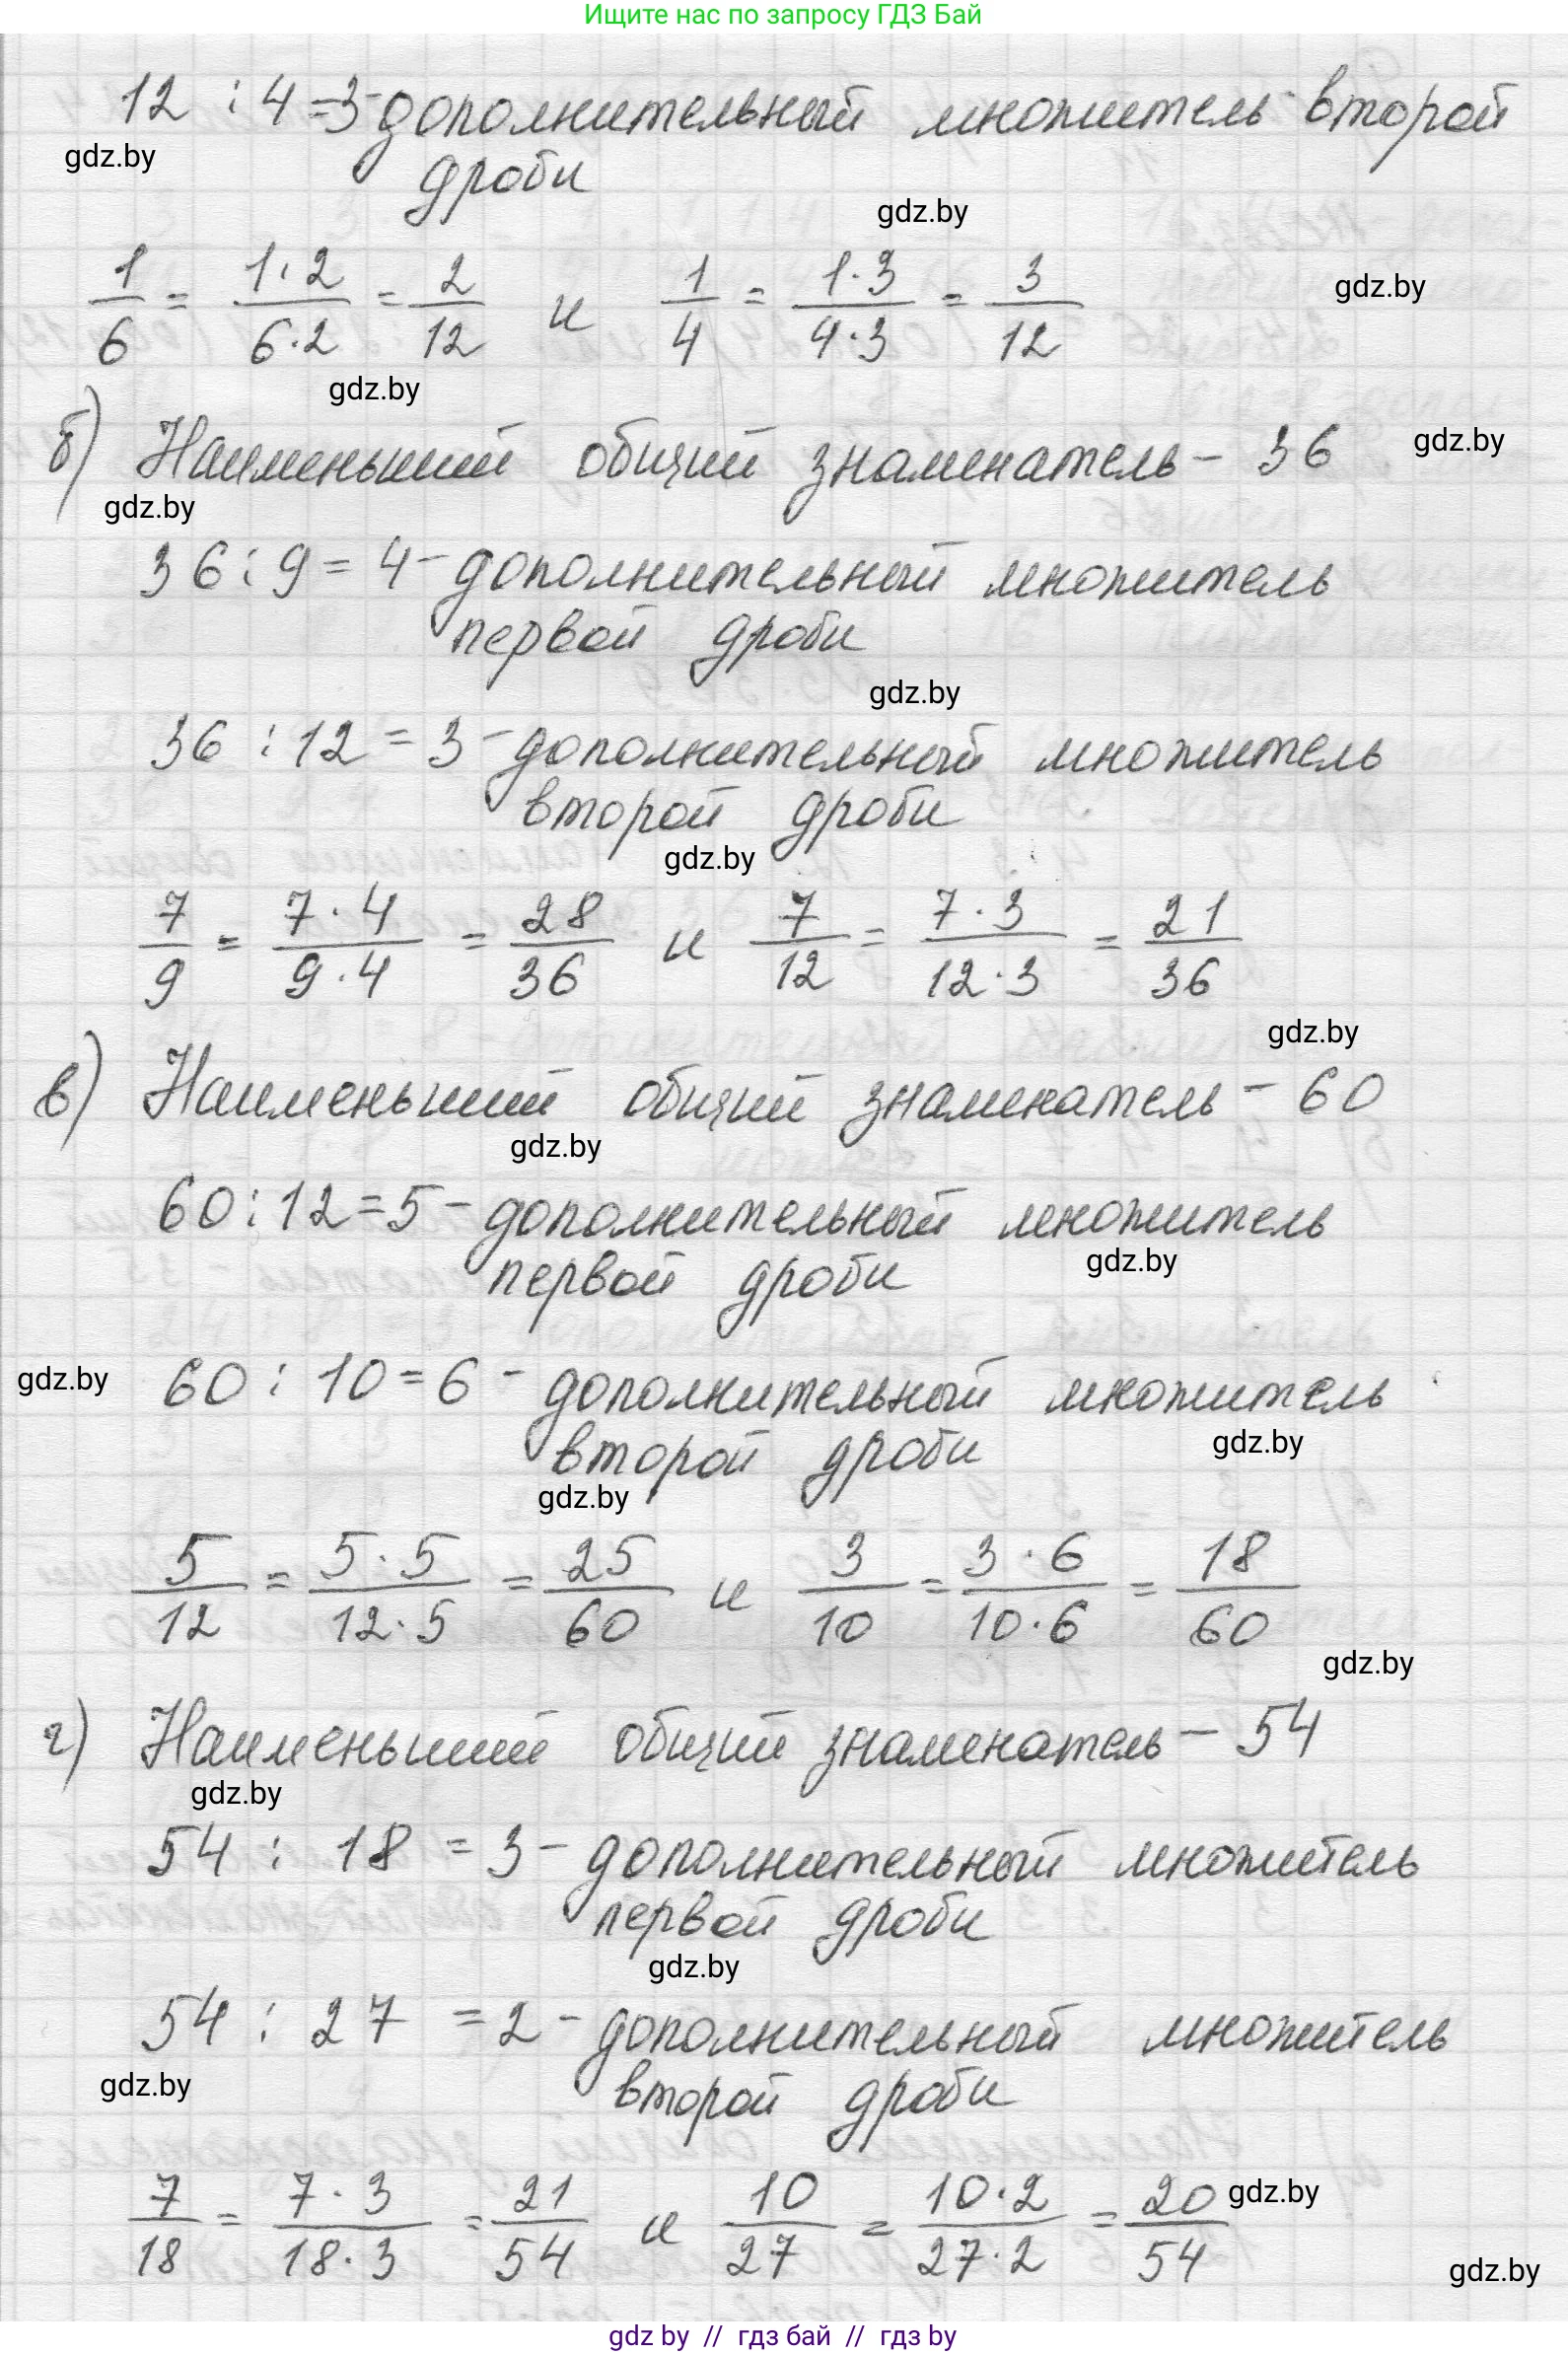 Ищите нас по запросу ГДЗ Бай
12 : 4 = 3 - дополнительный множитель второй
gdz.by
дроби
gdz.by
1/6 = 1·2/6·2 = 2/12 и 1/4 = 1·3/4·3 = 3/12
gdz.by
gdz.by
б) Наименьший общий знаменатель - 36
gdz.by
gdz.by
36 : 9 = 4 - дополнительный множитель
первой дроби
gdz.by
36 : 12 = 3 - дополнительный множитель
второй дроби
gdz.by
7/9 = 7·4/9·4 = 28/36 и 7/12 = 7·3/12·3 = 21/36
gdz.by
в) Наименьший общий знаменатель - 60
gdz.by
60 : 12 = 5 - дополнительный множитель
gdz.by
первой дроби
gdz.by
60 : 10 = 6 - дополнительный множитель
gdz.by
второй дроби
gdz.by
5/12 = 5·5/12·5 = 25/60 и 3/10 = 3·6/10·6 = 18/60
gdz.by
г) Наименьший общий знаменатель - 54
gdz.by
54 : 18 = 3 - дополнительный множитель
первой дроби
gdz.by
54 : 27 = 2 - дополнительный множитель
gdz.by
второй дроби
7/18 = 7·3/18·3 = 21/54 и 10/27 = 10·2/27·2 = 20/54
gdz.by
gdz.by
gdz by // гдз бай // гдз by